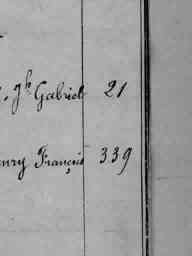 Jh Gabriel 21
enry François 339